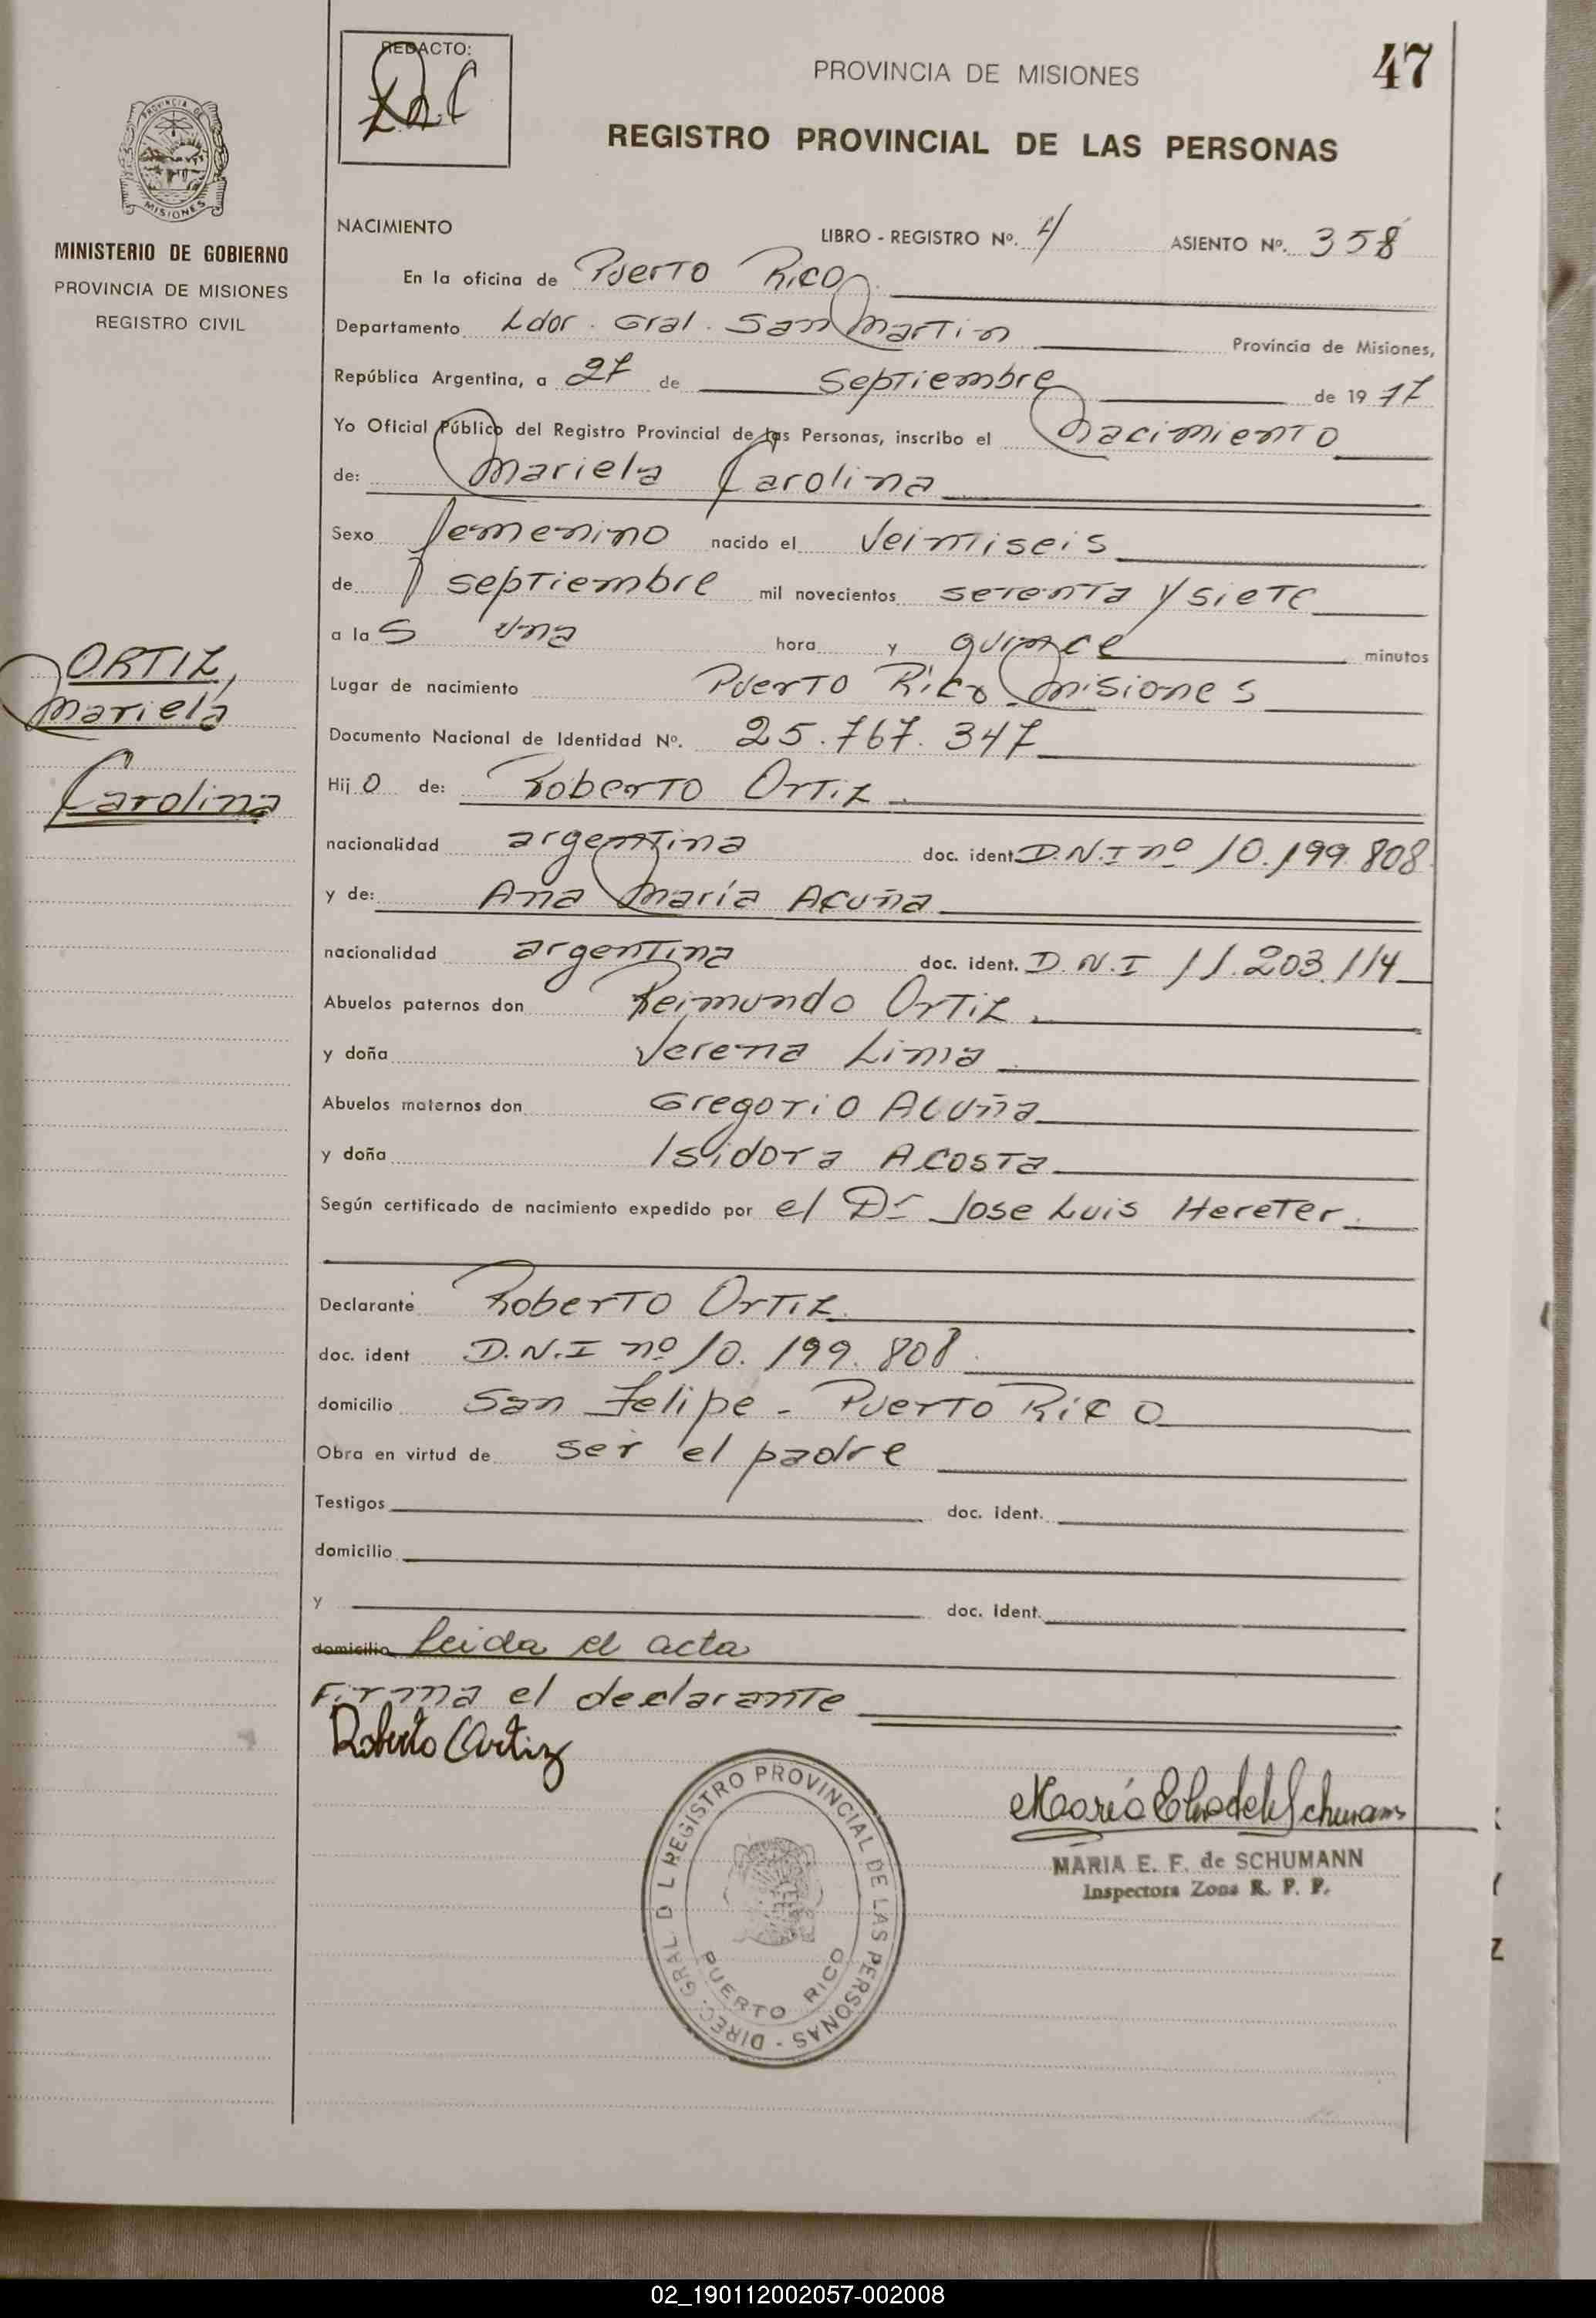 REDACTO:
PROVINCIA DE MISIONES
47
REGISTRO PROVINCIAL DE LAS PERSONAS
PROVINCIA DE
MISIONES
MINISTERIO DE GOBIERNO
PROVINCIA DE MISIONES
REGISTRO CIVIL
NACIMIENTO LIBRO - REGISTRO Nº. 4 ASIENTO Nº. 358
En la oficina de Puerto Rico
Departamento Ldor. Gral. San Martin Provincia de Misiones,
República Argentina, a 27 de Septiembre de 19 77
Yo Oficial Público del Registro Provincial de las Personas, inscribo el Nacimiento
de: Mariela Carolina
Sexo femenino nacido el Veintiseis
de septiembre mil novecientos setenta y siete
a las una hora y quince minutos
Lugar de nacimiento Puerto Rico Misiones
Documento Nacional de Identidad Nº. 25.767.347
Hijo de: Roberto Ortiz
nacionalidad argentina doc. ident. D.N.I nº 10.199.808
y de: Ana María Acuña
nacionalidad argentina doc. ident. D.N.I 11.203.114
Abuelos paternos don Reimundo Ortiz
y doña Verena Lima
Abuelos maternos don Gregorio Acuña
y doña Isidora Acosta
Según certificado de nacimiento expedido por el Dr Jose Luis Hereter
Declarante Roberto Ortiz
doc. ident D.N.I nº 10.199.808
domicilio San Felipe - Puerto Rico
Obra en virtud de ser el padre
Testigos doc. ident.
domicilio
y doc. ident.
domicilio leida el acta
Firma el declarante
Roberto Ortiz
ORTIZ,
Mariela
Carolina
DIREC. GRAL. D L REGISTRO PROVINCIAL DE LAS PERSONAS -
PUERTO RICO
MARIA E. F. de SCHUMANN
Inspectora Zona R. P. P.
02_190112002057-002008